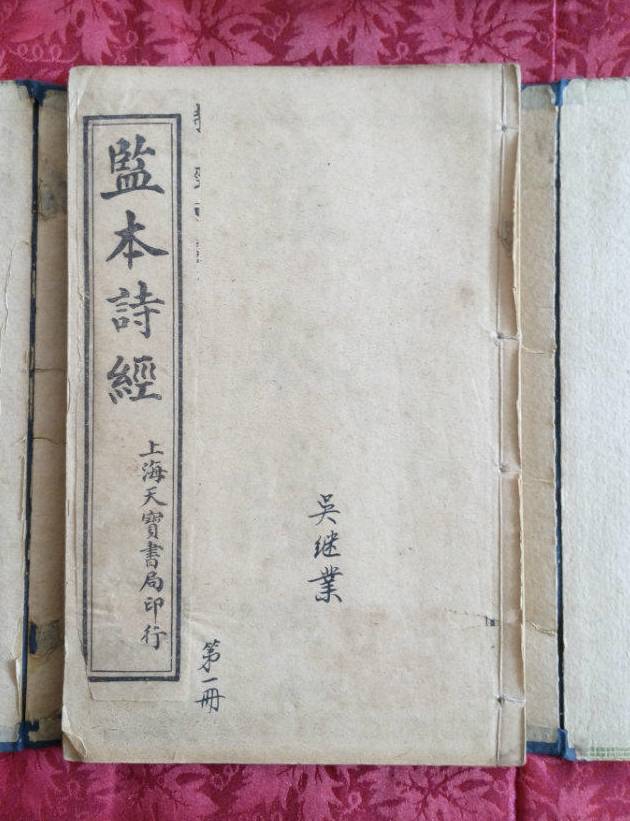 監本詩經
上海天寶書局印行
吳継業
第一冊